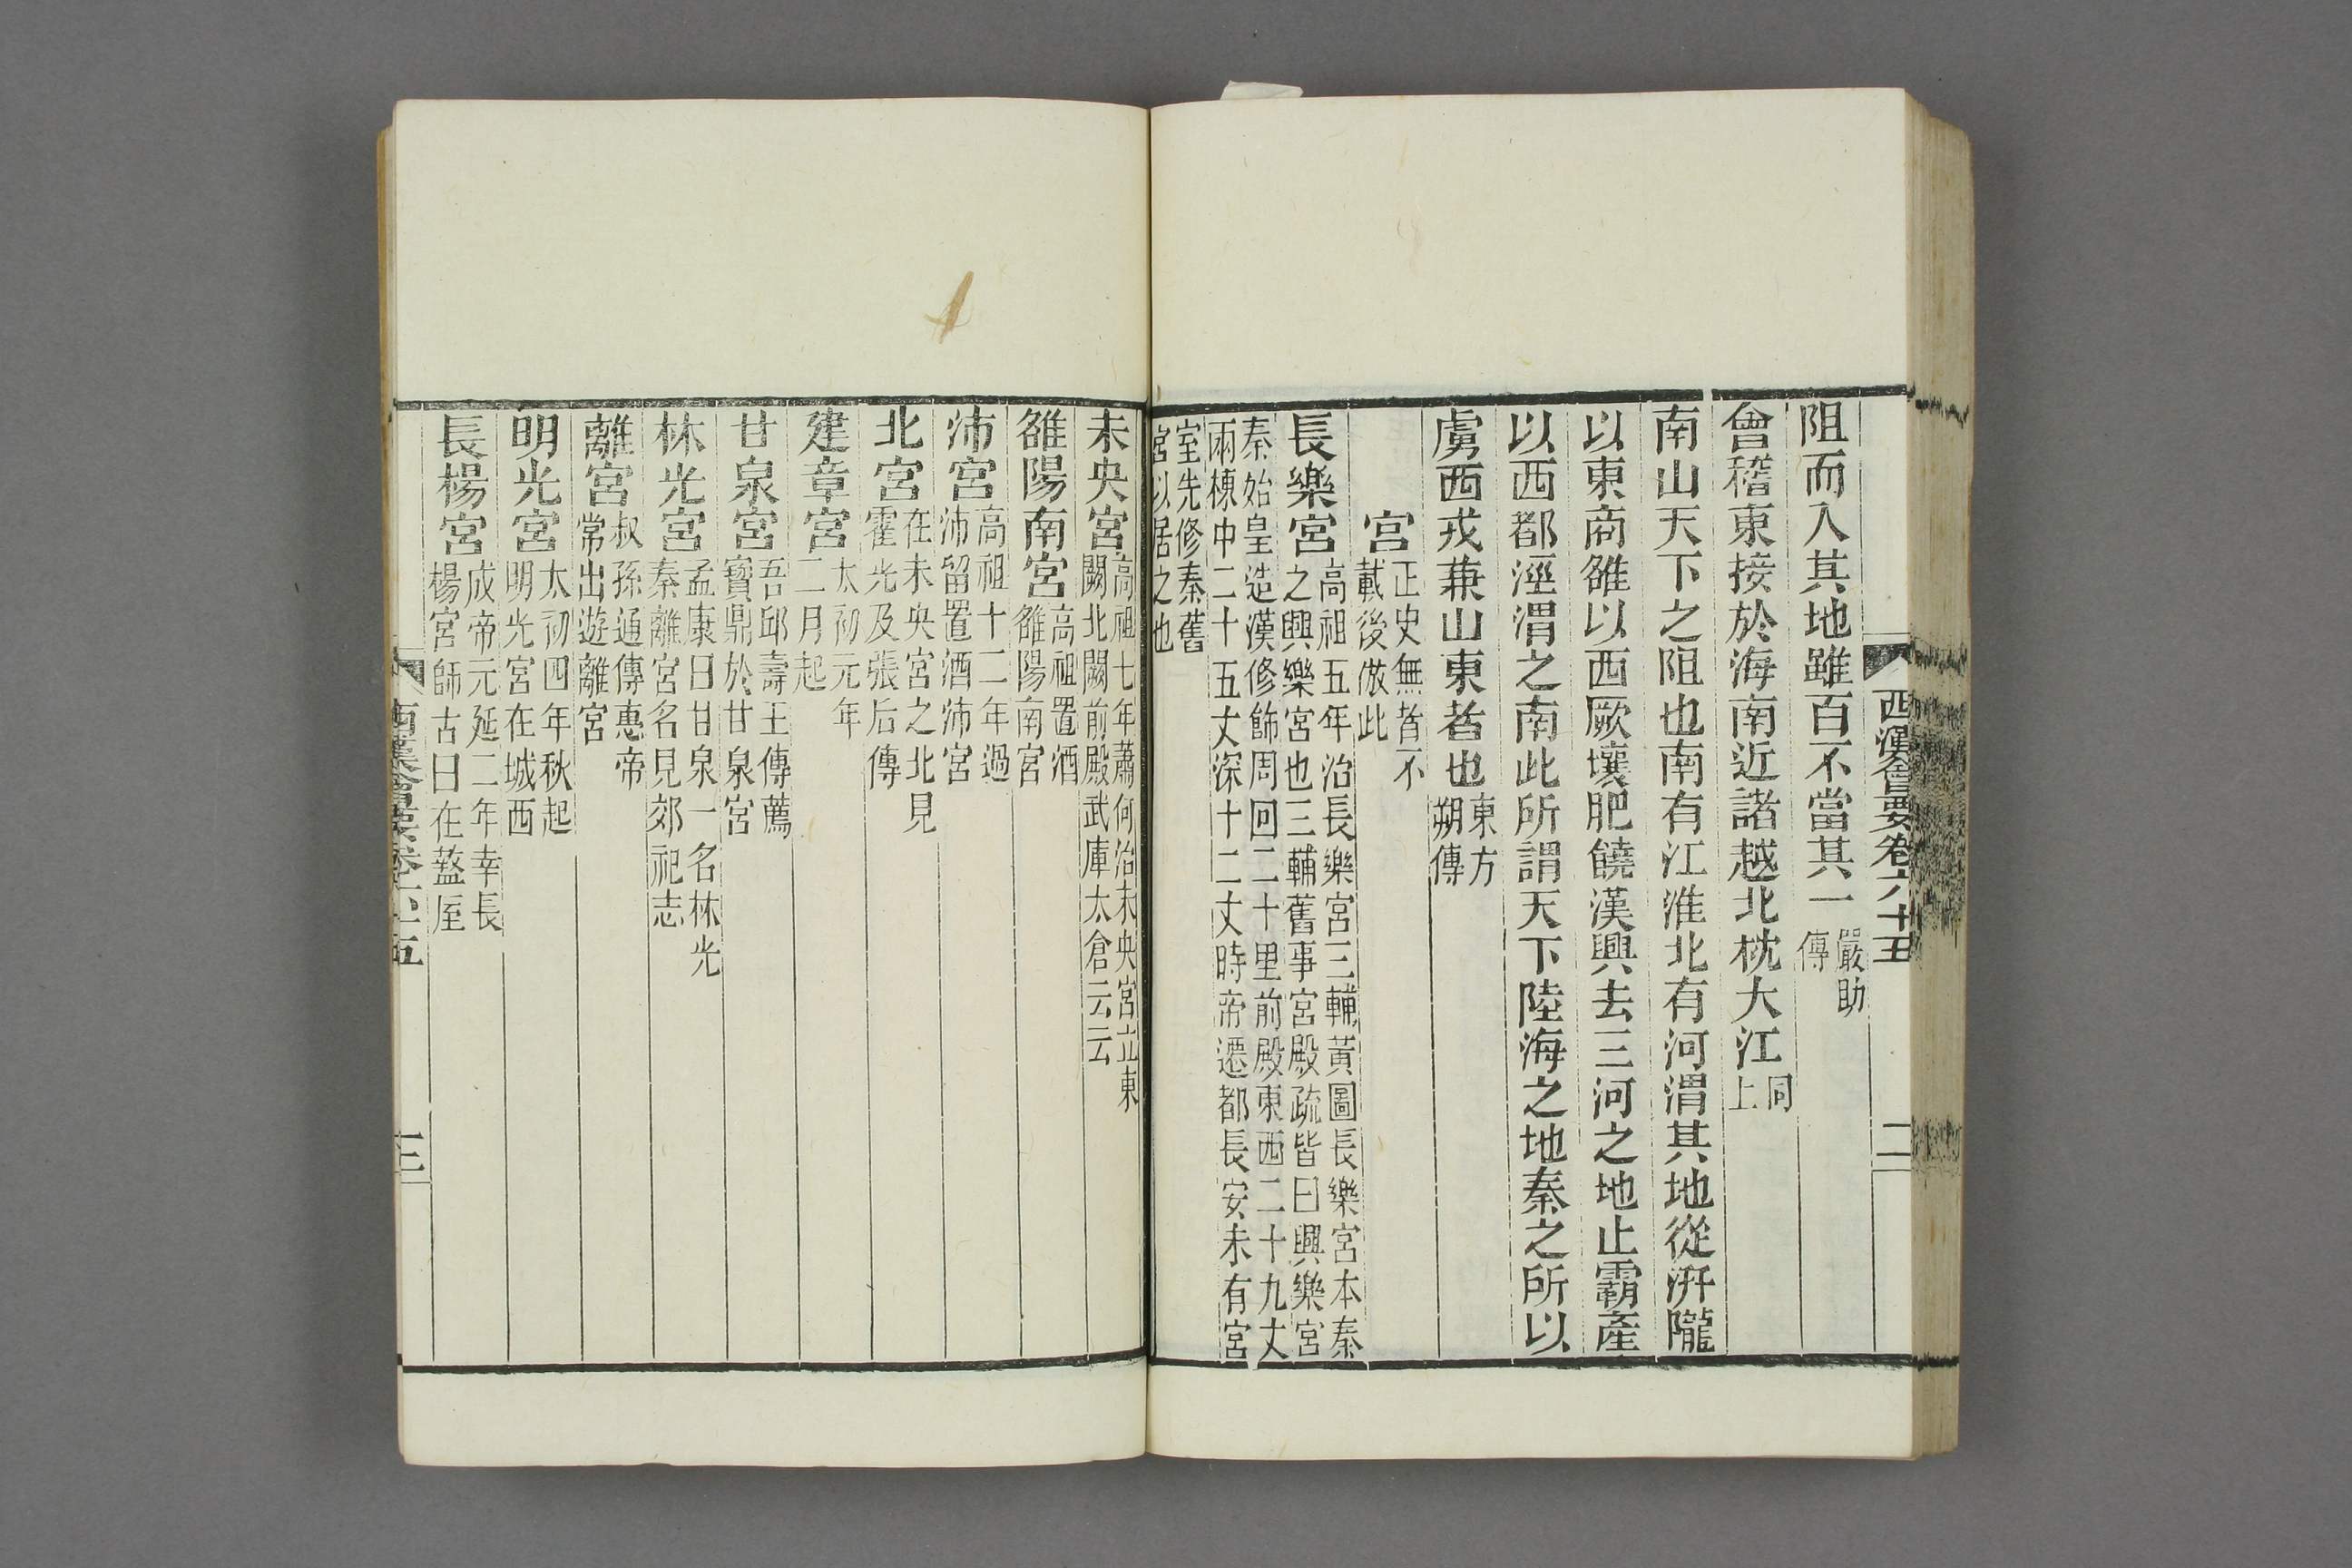 西漢會要卷六十五
二
阻而入其地雖百不當其一嚴助傳
會稽東接於海南近諸越北枕大江同上
南山天下之阻也南有江淮北有河渭其地從汧隴
以東商雒以西厥壤肥饒漢興去三河之地止霸產
以西都涇渭之南此所謂天下陸海之地秦之所以
虜西戎兼山東者也東方朔傳
宮正史無者不載後倣此
長樂宮高祖五年治長樂宮三輔黃圖長樂宮本秦之興樂宮也三輔舊事宮殿疏皆曰興樂宮
秦始皇造漢修飾周回二十里前殿東西二十九丈兩棟中二十五丈深十二丈時帝遷都長安未有宮
室先修秦舊宮以居之也
未央宮高祖七年蕭何治未央宮立東闕北闕前殿武庫太倉云云
雒陽南宮高祖置酒雒陽南宮
沛宮高祖十二年過沛留置酒沛宮
北宮在未央宮之北見霍光及張后傳
建章宮太初元年二月起
甘泉宮吾邱壽王傳薦寶鼎於甘泉宮
林光宮孟康曰甘泉一名林光秦離宮名見郊祀志
離宮叔孫通傳惠帝常出遊離宮
明光宮太初四年秋起明光宮在城西
長楊宮成帝元延二年幸長楊宮師古曰在盩厔
西漢會要卷六十五
三